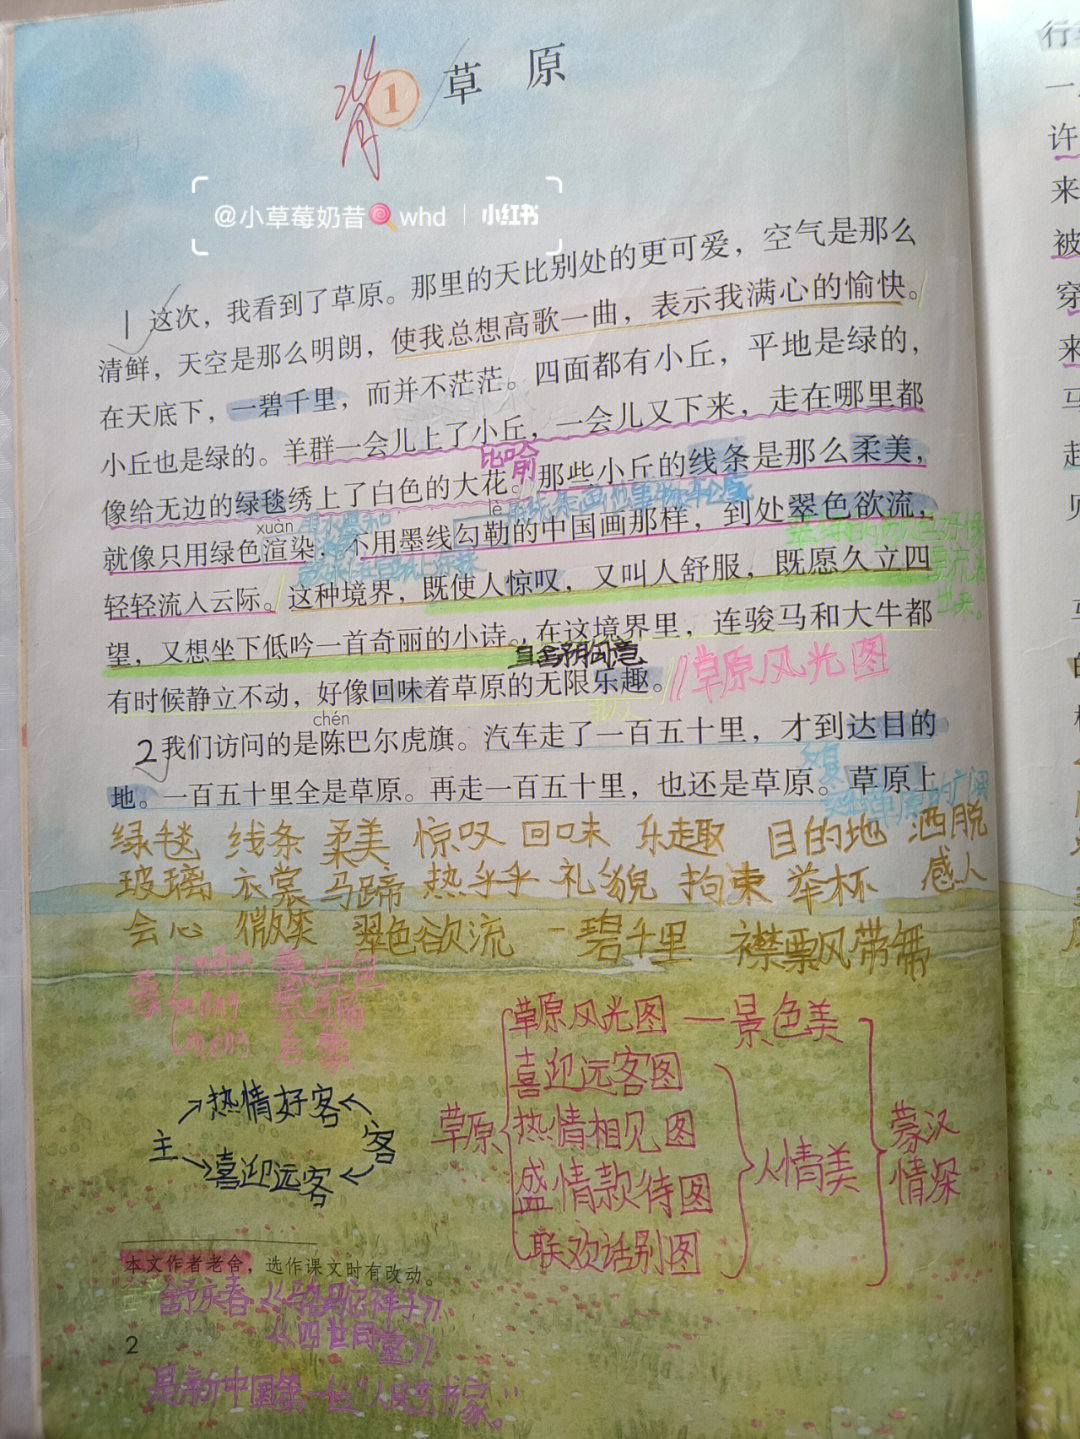 背
1 草原
@小草莓奶昔 whd | 小红书
1 这次，我看到了草原。那里的天比别处的更可爱，空气是那么
清鲜，天空是那么明朗，使我总想高歌一曲，表示我满心的愉快。
在天底下，一碧千里，而并不茫茫。四面都有小丘，平地是绿的，
小丘也是绿的。羊群一会儿上了小丘，一会儿又下来，走在哪里都
比喻
像给无边的绿毯绣上了白色的大花。那些小丘的线条是那么柔美，
xuàn
lè
就像只用绿色渲染，不用墨线勾勒的中国画那样，到处翠色欲流，
轻轻流入云际。这种境界，既使人惊叹，又叫人舒服，既愿久立四
望，又想坐下低吟一首奇丽的小诗。在这境界里，连骏马和大牛都
有时候静立不动，好像回味着草原的无限乐趣。//草原风光图
chén
2 我们访问的是陈巴尔虎旗。汽车走了一百五十里，才到达目的
地。一百五十里全是草原。再走一百五十里，也还是草原。草原上
绿毯 线条 柔美 惊叹 回味 乐趣 目的地 洒脱
玻璃 衣裳 马蹄 热乎乎 礼貌 拘束 举杯 感人
会心 微笑 翠色欲流 一碧千里 襟飘带舞
蒙 měng 蒙古包
mēng 蒙骗
méng 启蒙
草原
草原风光图 — 景色美
喜迎远客图
热情相见图
盛情款待图
联欢话别图
人情美
蒙汉
情深
主 热情好客 客
喜迎远客
本文作者老舍，选作课文时有改动。
舒庆春《骆驼祥子》
《四世同堂》
是新中国第一位“人民艺术家。”
2
行
一
许
来
被
穿
来
马